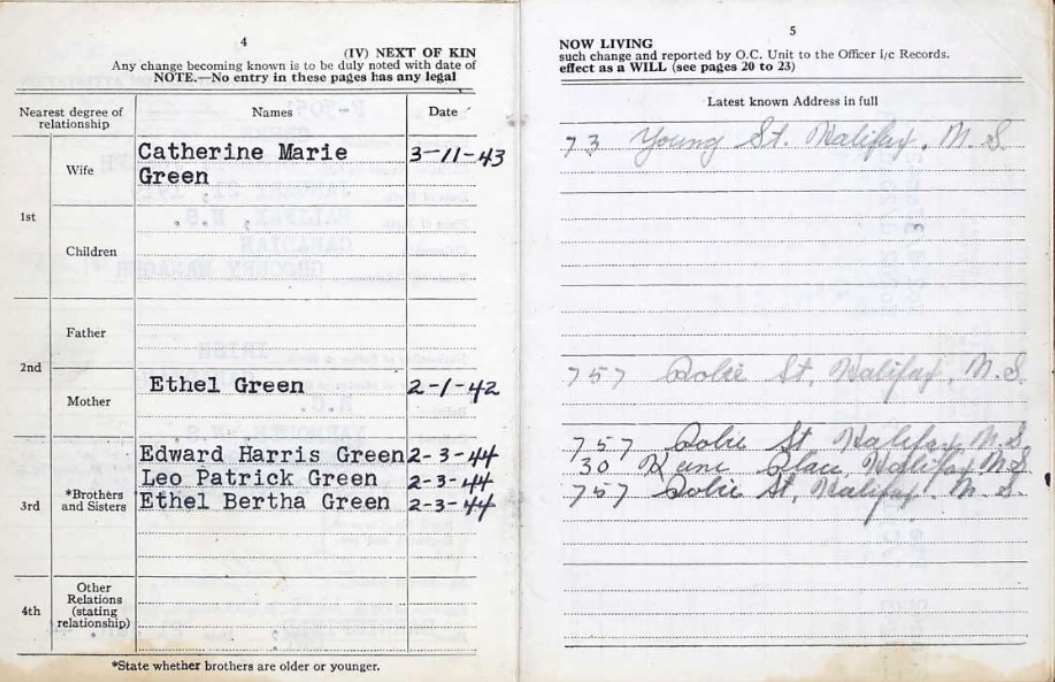 4
(IV) NEXT OF KIN
Any change becoming known is to be duly noted with date of
NOTE.—No entry in these pages has any legal
Nearest degree of
relationship
Names
Date
1st
Wife
Catherine Marie
Green
3-11-43
Children
2nd
Father
Mother
Ethel Green
2-1-42
3rd
*Brothers
and Sisters
Edward Harris Green 2-3-44
Leo Patrick Green 2-3-44
Ethel Bertha Green 2-3-44
4th
Other
Relations
(stating
relationship)
*State whether brothers are older or younger.
5
NOW LIVING
such change and reported by O.C. Unit to the Officer i/c Records.
effect as a WILL (see pages 20 to 23)
Latest known Address in full
73 Young St. Halifax, N.S.
757 Robie St, Halifax, N.S.
757 Robie St Halifax N.S.
30 Halifax N.S.
757 Robie St, Halifax, N.S.